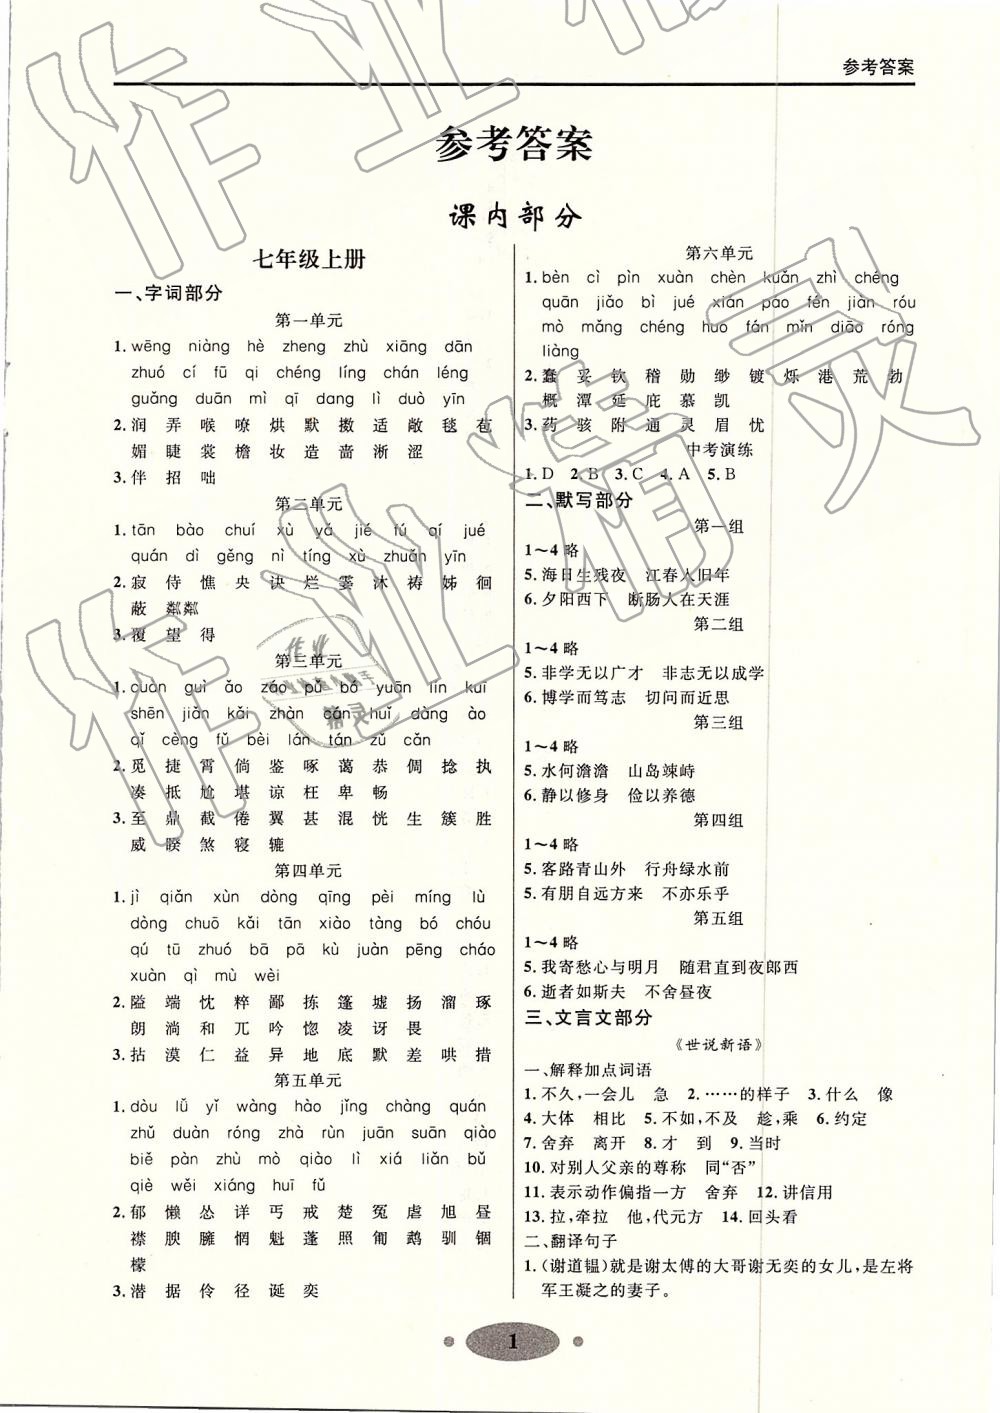 参考答案
参考答案
课内部分
七年级上册
一、字词部分
第一单元
1. wēng niàng hè zheng zhù xiāng dān
zhuó cí fū qi chéng líng chán léng
guǎng duān mì qī dang lì duò yīn
2. 润 弄 喉 嘹 烘 默 擞 适 敞 毯 苞
媚 睫 裳 檐 妆 造 啬 淅 涩
3. 伴 招 咄
第二单元
1. tān bào chuí xù yá jié fú qí jué
quán dì gěng nì tíng xù zhuǎn yīn
2. 寂 侍 憔 央 诀 烂 霎 沐 祷 姊 徊
蔽 粼粼
3. 覆 望 得
第三单元
1. cuàn guì ǎo záo pǔ bó yuān lín kuī
shēn jiǎn kǎi zhàn cán huǐ dàng ào
qǐ cèng fǔ bèi lán tán zǔ cǎn
2. 觅 捷 霄 倘 鉴 啄 蔼 恭 倜 捻 执
凑 抵 尬 堪 谅 枉 卑 畅
3. 至 鼎 截 倦 翼 甚 混 恍 生 簇 胜
威 睽 煞 寝 辘
第四单元
1. jì qiǎn xùn dòng qīng pèi míng lù
dòng chuō kǎi tān xiào tàng bó chóu
qú tū zhuó bā pā kù juàn pēng cháo
xuàn qì mù wèi
2. 隘 端 忱 粹 鄙 拣 篷 墟 扬 溜 琢
朗 淌 和 兀 吟 惚 凌 讶 畏
3. 拈 漠 仁 益 异 地 底 默 差 哄 措
第五单元
1. dòu lǚ yǐ wàng hào jǐng chàng quán
zhǔ duàn róng zhà rùn juān suān qiào
biě pàn zhù mò qiào lì xiá liǎn bǔ
qiè wěi xiáng huī fǔ
2. 郁 懒 怂 详 丐 戒 楚 冤 虐 旭 昼
襟 腴 臃 惘 魁 蓬 照 匍 鹉 驯 锢
檬
3. 潜 据 伶 径 诞 奕
第六单元
1. bèn cì pìn xuàn chèn kuǎn zhì chéng
quān jiǎo bì jué xián páo fén jiān róu
mò mǎng chéng huò fán mǐn diāo róng
liàng
2. 蠢 妥 钦 稽 勋 缈 镀 烁 港 荒 勃
概 潭 延 庇 慕 凯
3. 药 骇 附 通 灵 眉 忧
中考演练
1. D 2. B 3. C 4. A 5. B
二、默写部分
第一组
1～4 略
5. 海日生残夜 江春入旧年
6. 夕阳西下 断肠人在天涯
第二组
1～4 略
5. 非学无以广才 非志无以成学
6. 博学而笃志 切问而近思
第三组
1～4 略
5. 水何澹澹 山岛竦峙
6. 静以修身 俭以养德
第四组
1～4 略
5. 客路青山外 行舟绿水前
6. 有朋自远方来 不亦乐乎
第五组
1～4 略
5. 我寄愁心与明月 随君直到夜郎西
6. 逝者如斯夫 不舍昼夜
三、文言文部分
《世说新语》
一、解释加点词语
1. 不久,一会儿 急 2. ……的样子 3. 什么 像
4. 大体 相比 5. 不如,不及 趁,乘 6. 约定
7. 舍弃 离开 8. 才 到 9. 当时
10. 对别人父亲的尊称 同“否”
11. 表示动作偏指一方 舍弃 12. 讲信用
13. 拉,牵拉 他,代元方 14. 回头看
二、翻译句子
1.(谢道韫)就是谢太傅的大哥谢无奕的女儿,是左将
军王凝之的妻子。
1